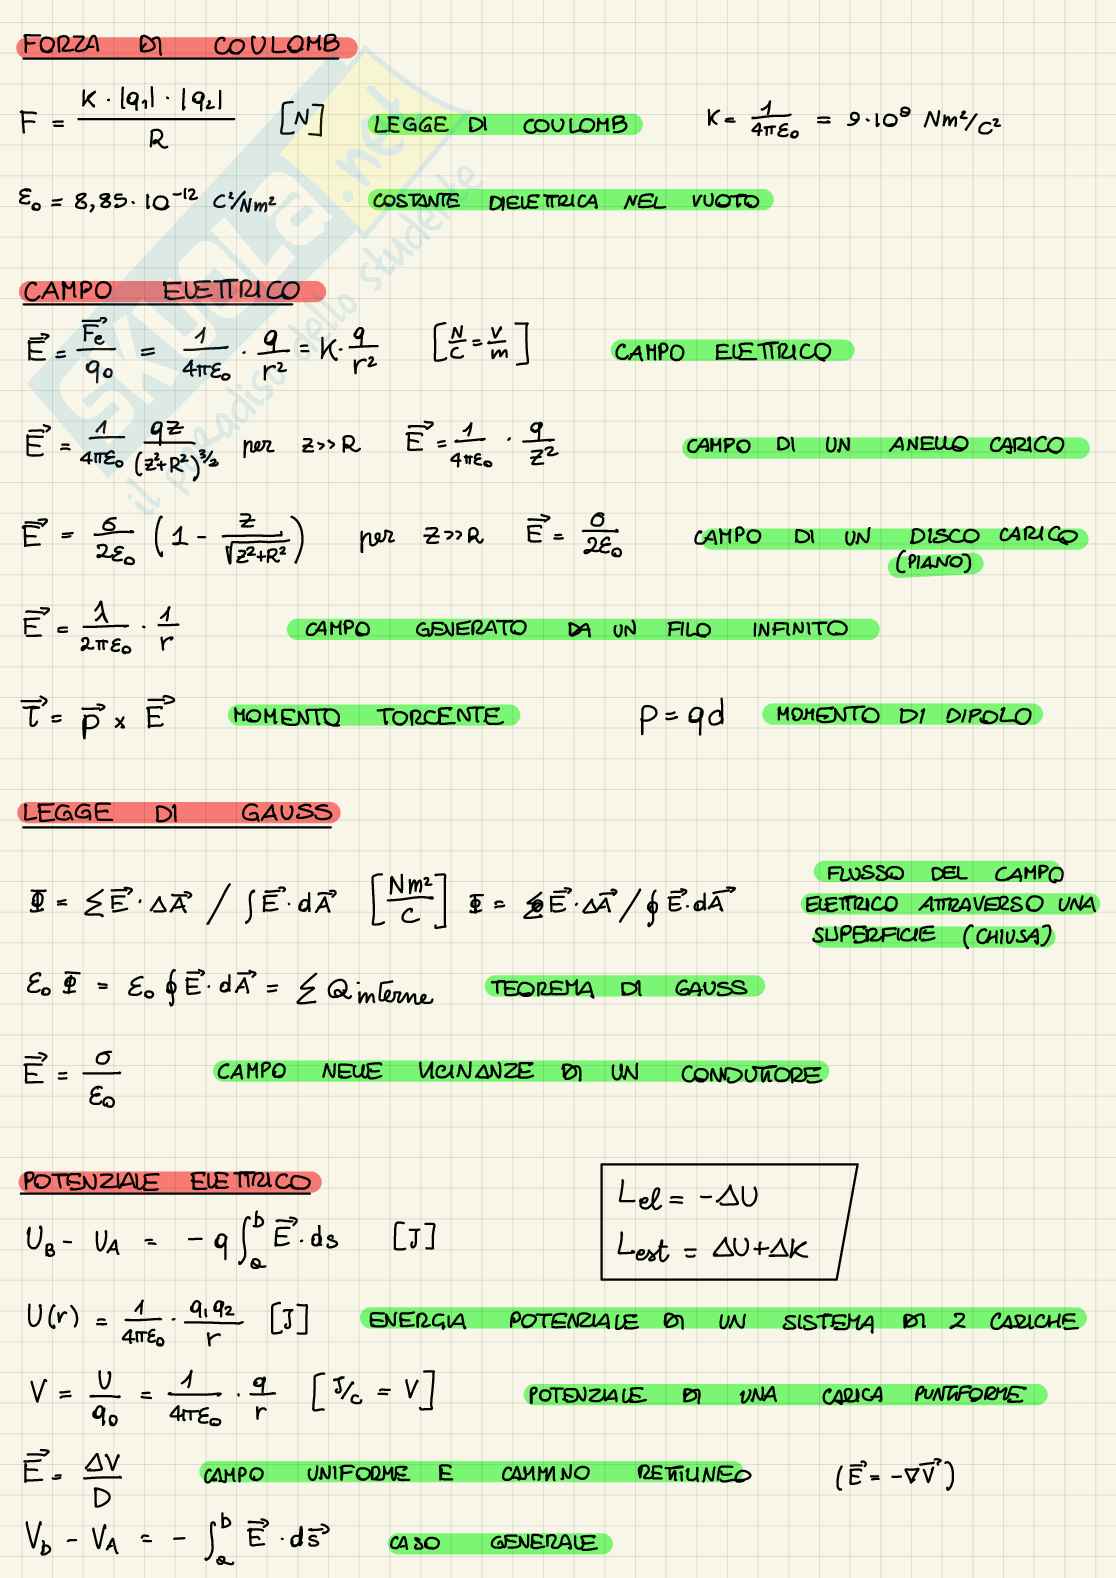 FORZA DI COULOMB
F = K · |q1| · |q2| / R [N] LEGGE DI COULOMB K = 1/4πε0 = 9·10⁹ Nm²/C²
ε0 = 8,85·10⁻¹² C²/Nm² COSTANTE DIELETTRICA NEL VUOTO
CAMPO ELETTRICO
E⃗ = F⃗e/q0 = 1/4πε0 · q/r² = K · q/r² [N/C = V/m] CAMPO ELETTRICO
E⃗ = 1/4πε0 qz/(z²+R²)^3/2 per z>>R E⃗ = 1/4πε0 · q/z² CAMPO DI UN ANELLO CARICO
E⃗ = σ/2ε0 (1 - z/√(z²+R²)) per z>>R E⃗ = σ/2ε0 CAMPO DI UN DISCO CARICO
(PIANO)
E⃗ = λ/2πε0 · 1/r CAMPO GENERATO DA UN FILO INFINITO
τ⃗ = p⃗ x E⃗ MOMENTO TORCENTE p = qd MOMENTO DI DIPOLO
LEGGE DI GAUSS
Φ = ∑ E⃗ · ΔA⃗ / ∫ E⃗ · dA⃗ [Nm²/C] Φ = ∑ E⃗ · ΔA⃗ / ∮ E⃗ · dA⃗ FLUSSO DEL CAMPO
ELETTRICO ATTRAVERSO UNA
SUPERFICIE (CHIUSA)
ε0 Φ = ε0 ∮ E⃗ · dA⃗ = ∑ Q interne TEOREMA DI GAUSS
E⃗ = σ/ε0 CAMPO NELLE VICINANZE DI UN CONDUTTORE
POTENZIALE ELETTRICO
Lel = -ΔU
Lest = ΔU+ΔK
UB - UA = -q ∫ₐᵇ E⃗ · ds [J]
U(r) = 1/4πε0 · q1q2/r [J] ENERGIA POTENZIALE DI UN SISTEMA DI 2 CARICHE
V = U/q0 = 1/4πε0 · q/r [J/C = V] POTENZIALE DI UNA CARICA PUNTIFORME
E⃗ = ΔV/D CAMPO UNIFORME E CAMMINO RETTILINEO (E⃗ = -∇V⃗)
Vb - VA = - ∫ₐᵇ E⃗ · ds⃗ CASO GENERALE
SKUOLA.net
il paradiso dello studente